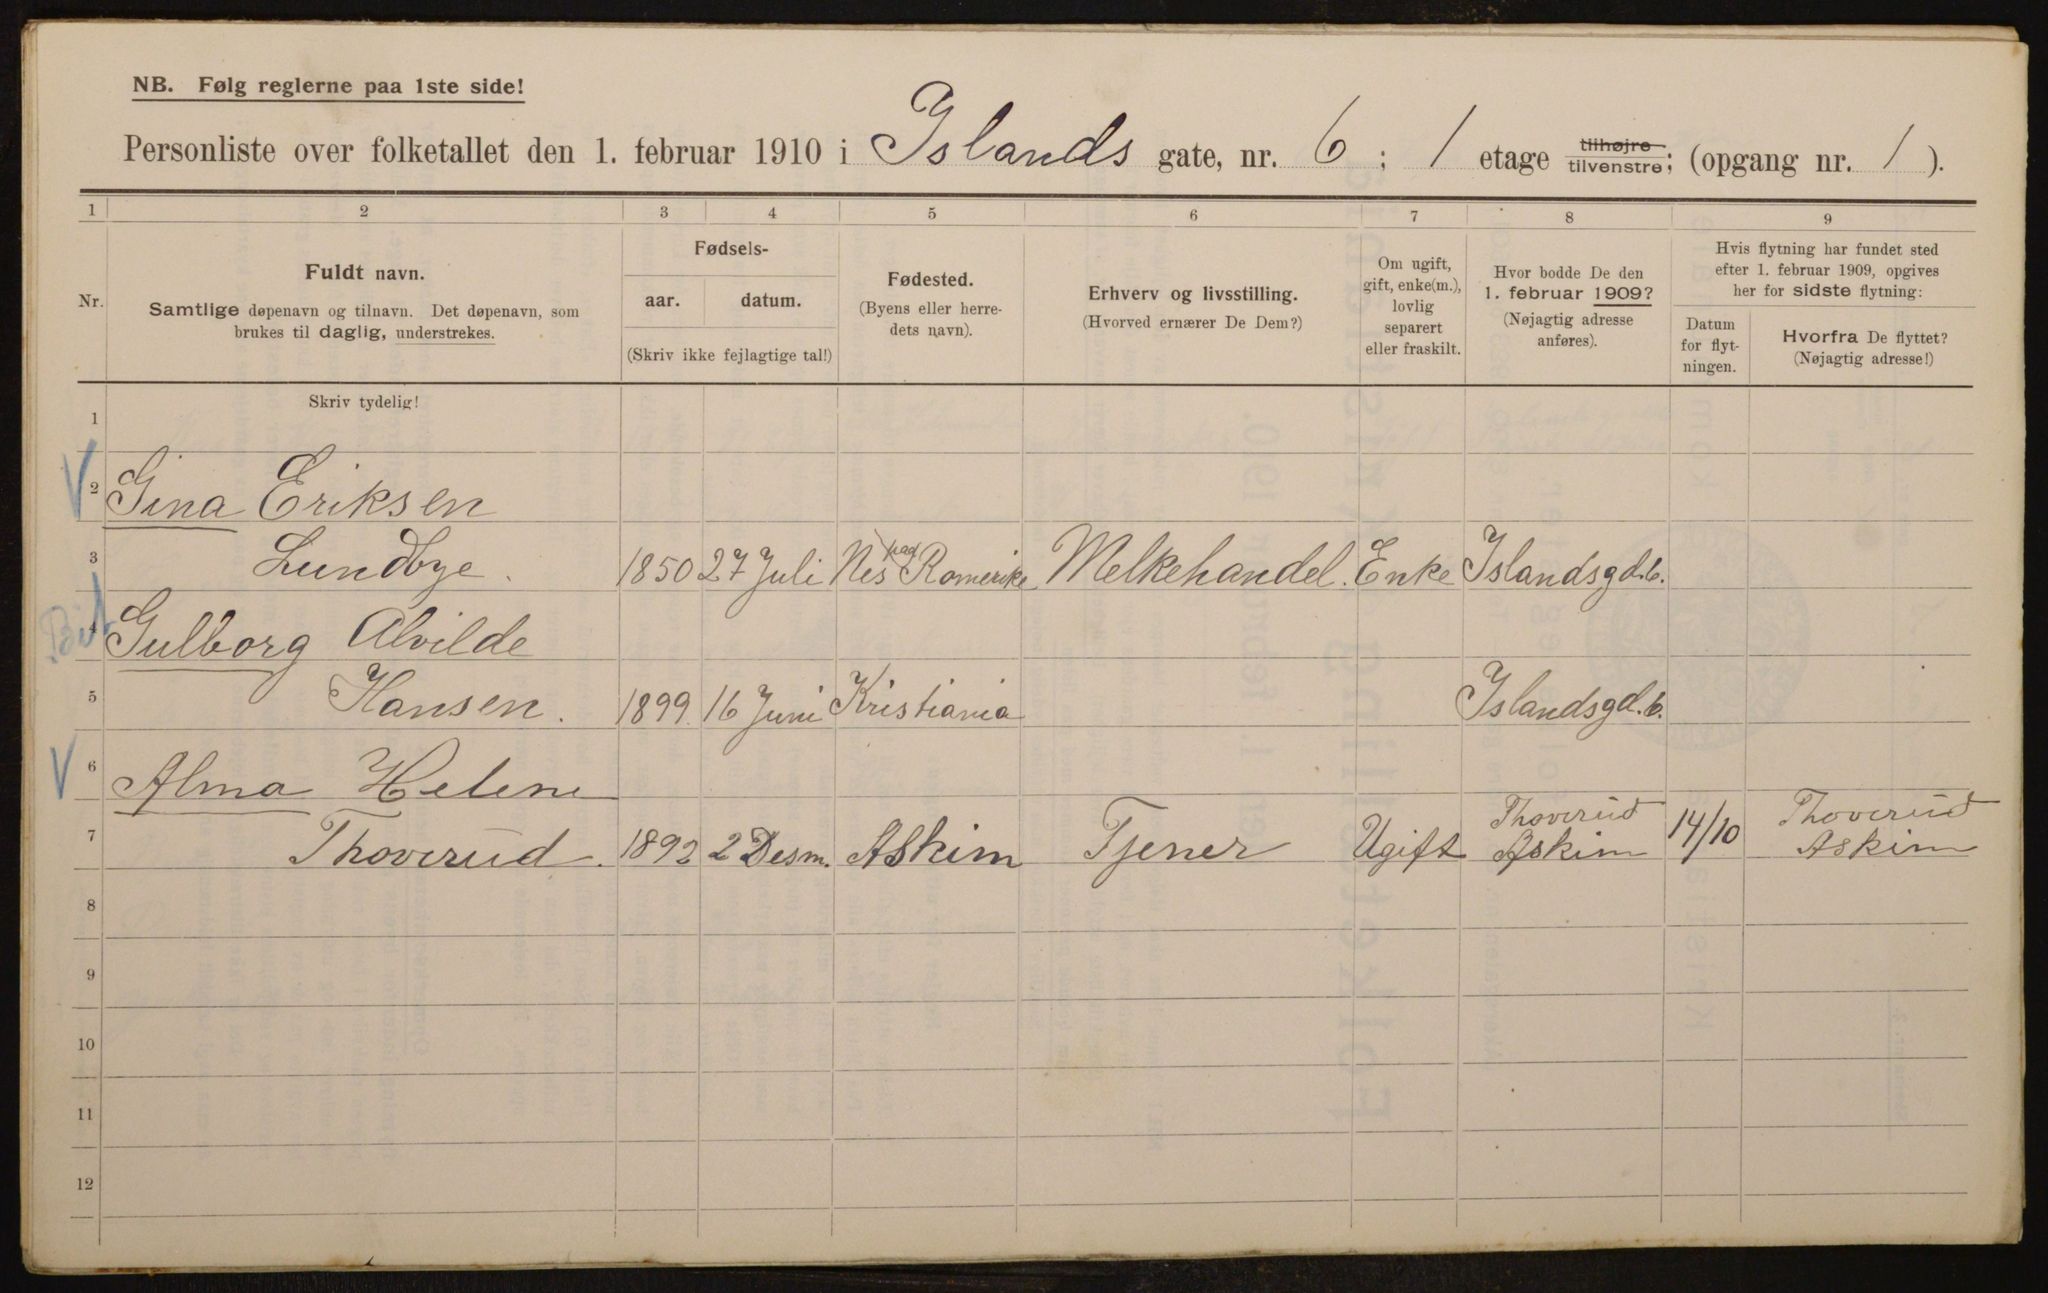 NB. Følg reglerne paa 1ste side!
Personliste over folketallet den 1. februar 1910 i Islands gate, nr. 6 ; 1 etage tilhøjre tilvenstre; (opgang nr. 1 ).
1 2 3 4 5 6 7 8 9
Nr.
Fuldt navn.
Samtlige døpenavn og tilnavn. Det døpenavn, som
brukes til daglig, understrekes.
Fødsels-
aar. datum.
(Skriv ikke fejlagtige tal!)
Fødested.
(Byens eller herre-
dets navn).
Erhverv og livsstilling.
(Hvorved ernærer De Dem?)
Om ugift,
gift, enke(m.),
lovlig
separert
eller fraskilt.
Hvor bodde De den
1. februar 1909?
(Nøjagtig adresse
anføres).
Hvis flytning har fundet sted
efter 1. februar 1909, opgives
her for sidste flytning:
Datum
for flyt-
ningen.
Hvorfra De flyttet?
(Nøjagtig adresse!)
Skriv tydelig!
1
2 Gina Eriksen
3 Lundbye. 1850 27 Juli Nes paa Romerike Melkehandel. Enke Islandsgd.6.
4 Gulborg Alvilde
5 Hansen. 1899. 16 Juni Kristiania Islandsgd.6.
6 Alma Helene
7 Thoverud. 1892 2 Desm. Askim Tjener Ugift Thoverud Askim 14/10 Thoverud Askim
8
9
10
11
12